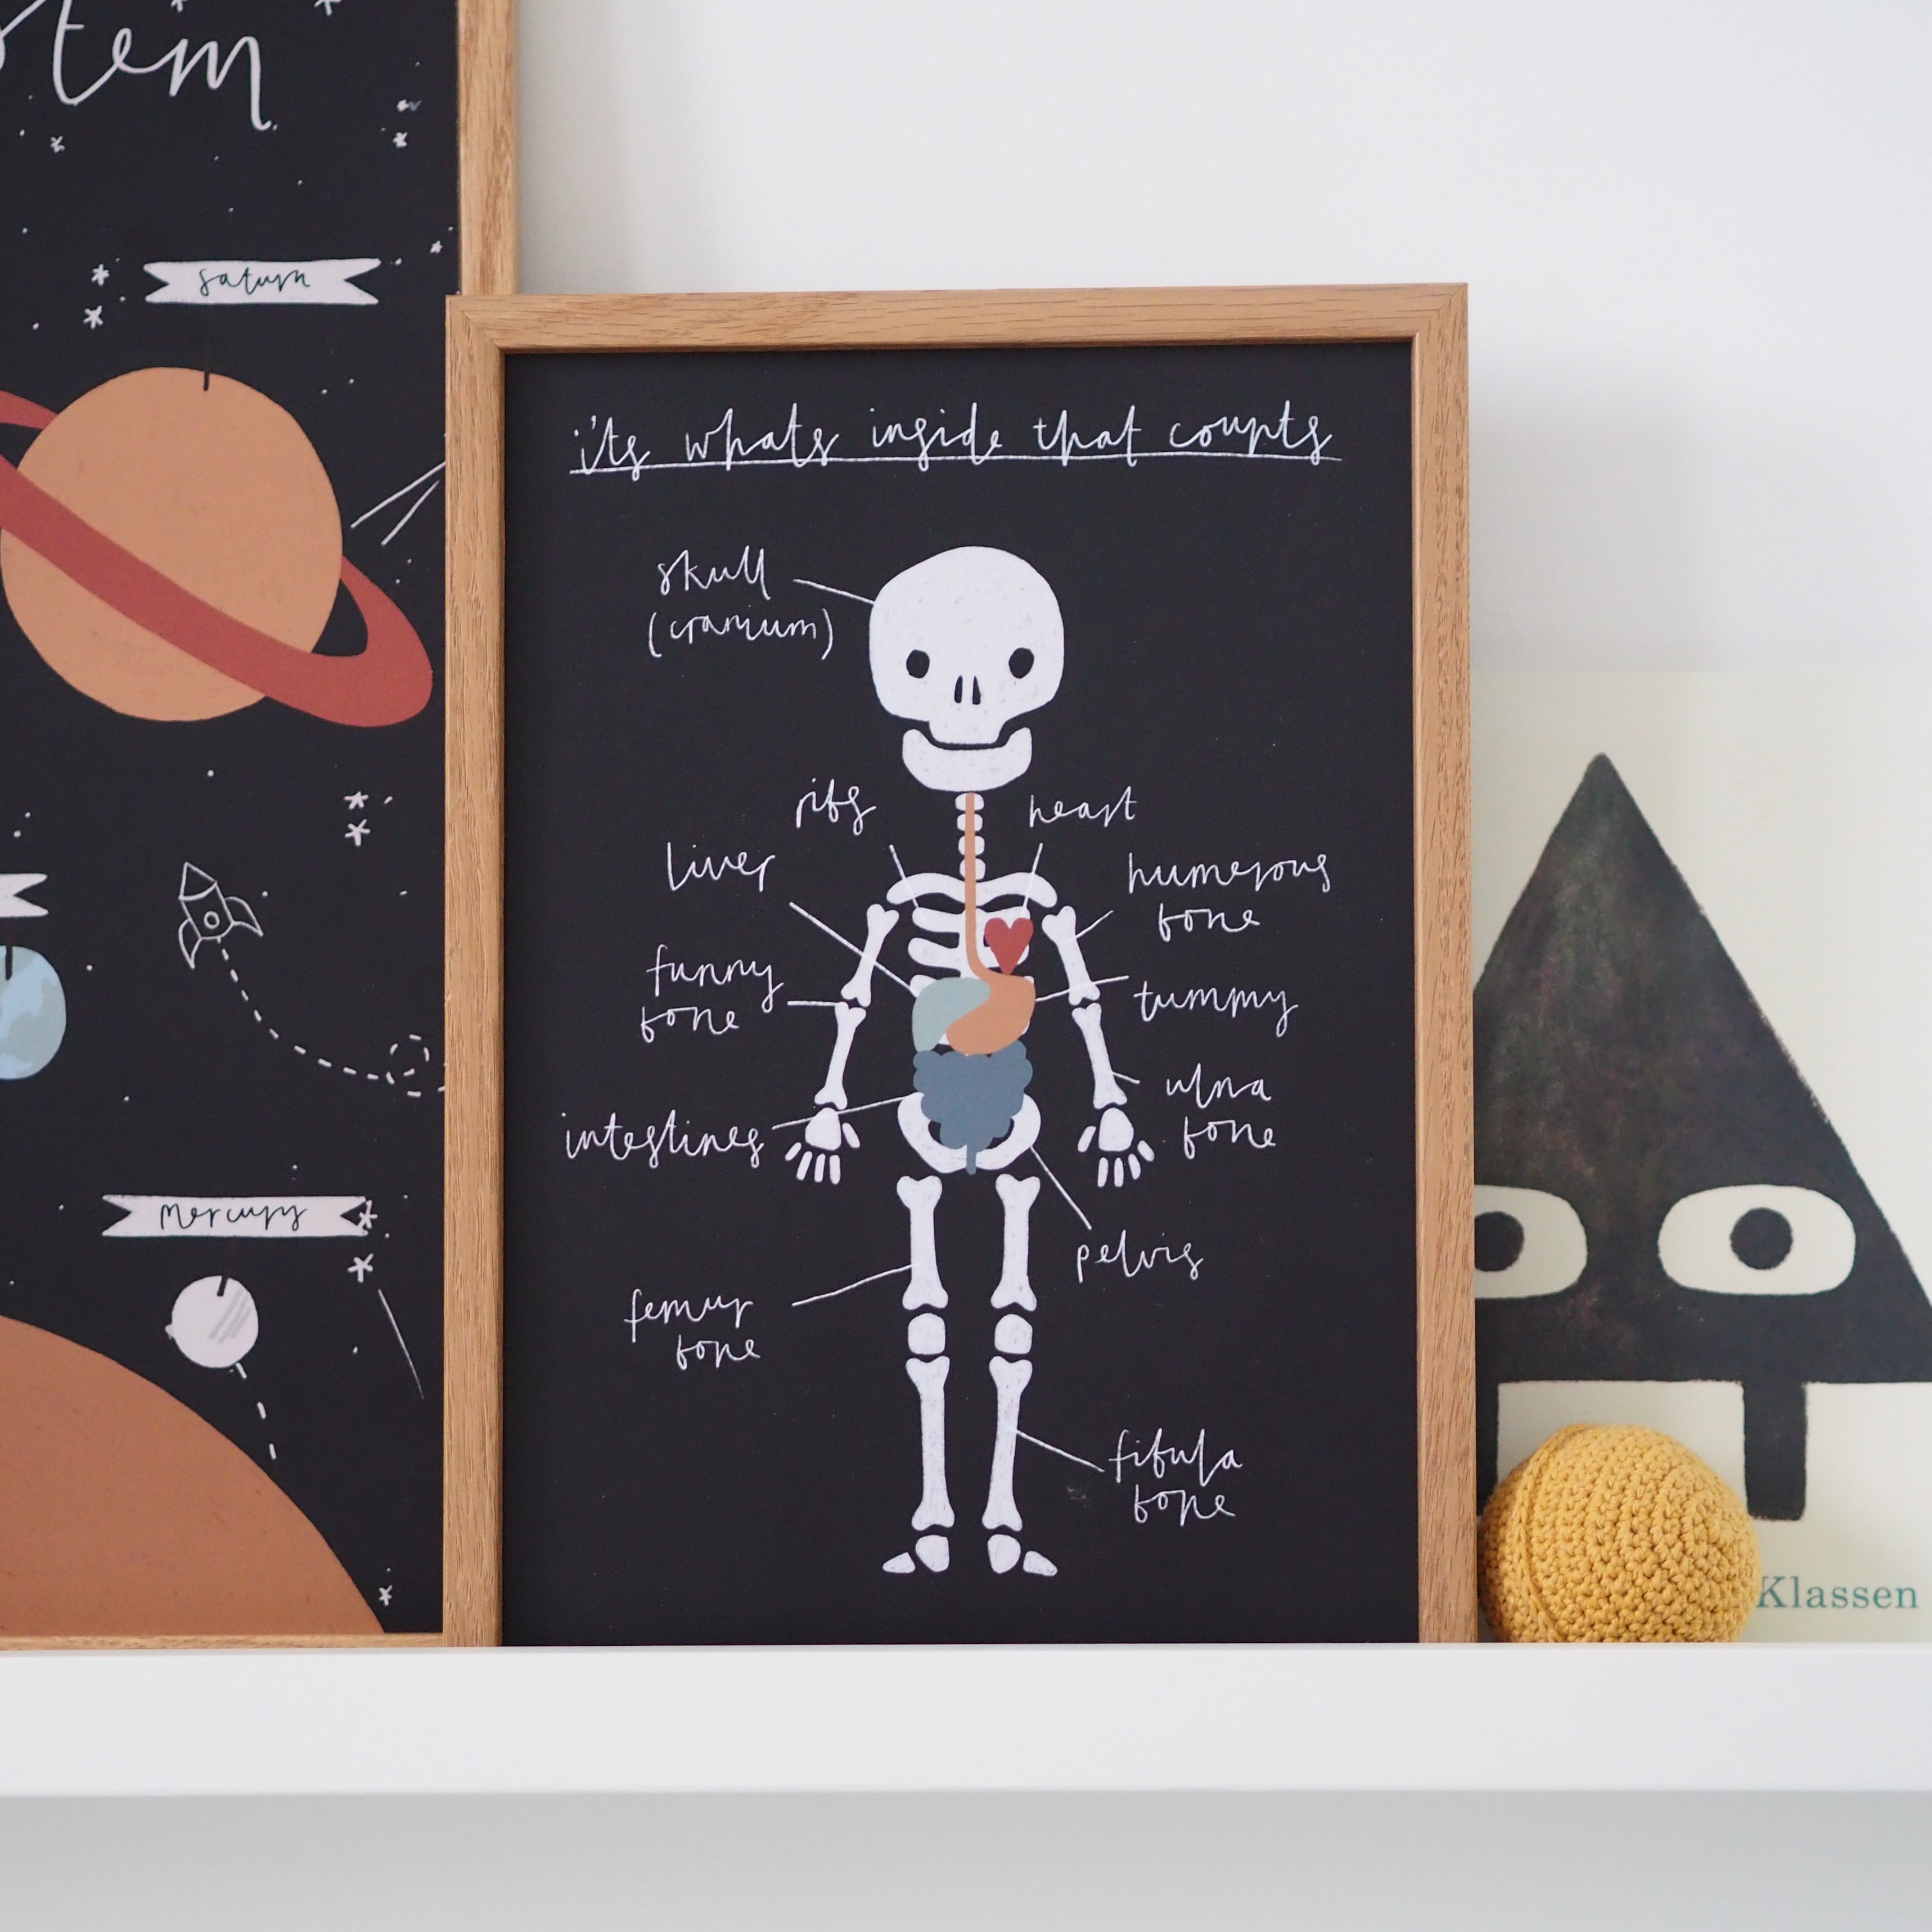 stem
saturn
mercury
its whats inside that counts
skull
(cranium)
ribs
heart
liver
humerous
bone
funny
bone
tummy
ulna
bone
intestines
pelvis
femur
bone
fibula
bone
Klassen